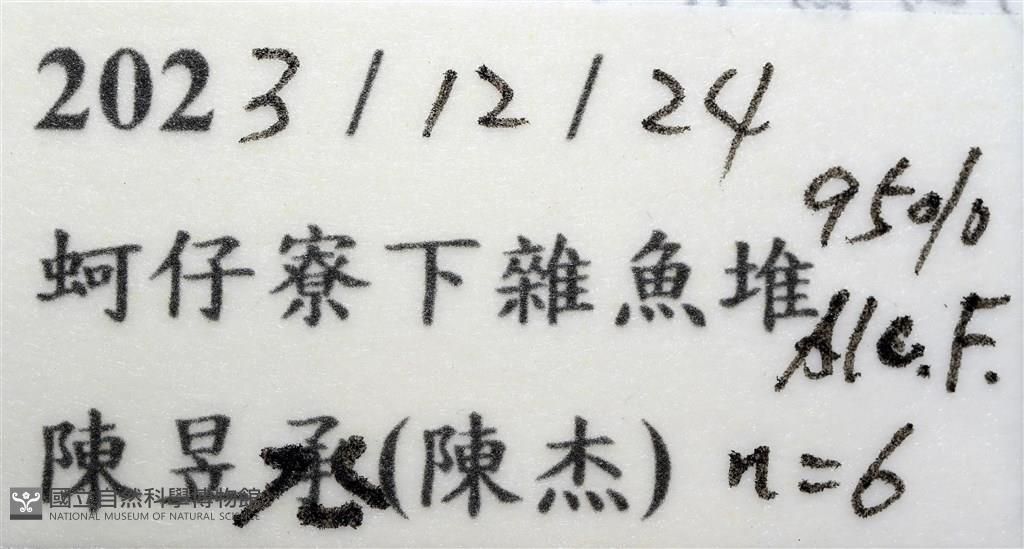 2023/12/24
蚵仔寮下雜魚堆
95%
Alc.F.
陳昱承(陳杰) n=6
國立自然科學博物館
NATIONAL MUSEUM OF NATURAL SCIENCE